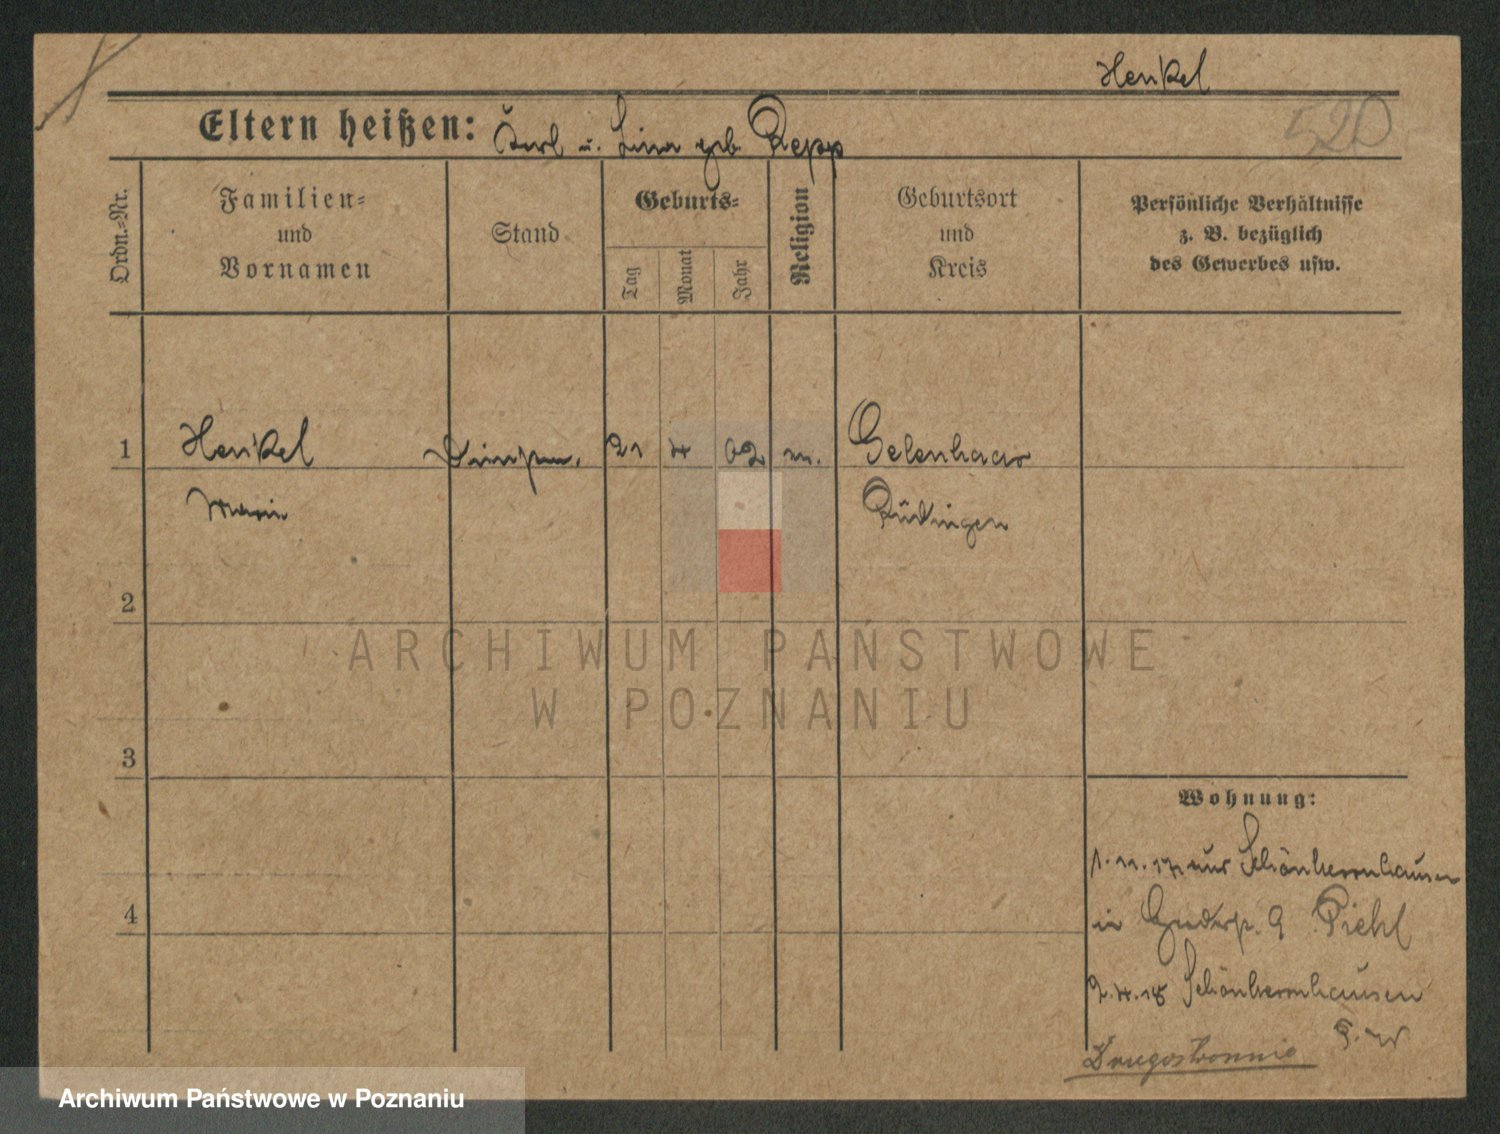 Henkel
520
Eltern heißen: Karl u. Lina geb. Repp
Ordn.-Nr.
Familien-
und
Vornamen
Stand
Geburts-
Tag
Monat
Jahr
Religion
Geburtsort
und
Kreis
Persönliche Verhältnisse
z. B. bezüglich
des Gewerbes usw.
1
Henkel
21
4
02
Gelenhaar
Marie
Büdingen
2
ARCHIWUM PAŃSTWOWE
W POZNANIU
3
Wohnung:
1.11.17 aus Schönherrnhausen
4
in 9 Piehl
2.4.18 Schönherrnhausen
Archiwum Państwowe w Poznaniu